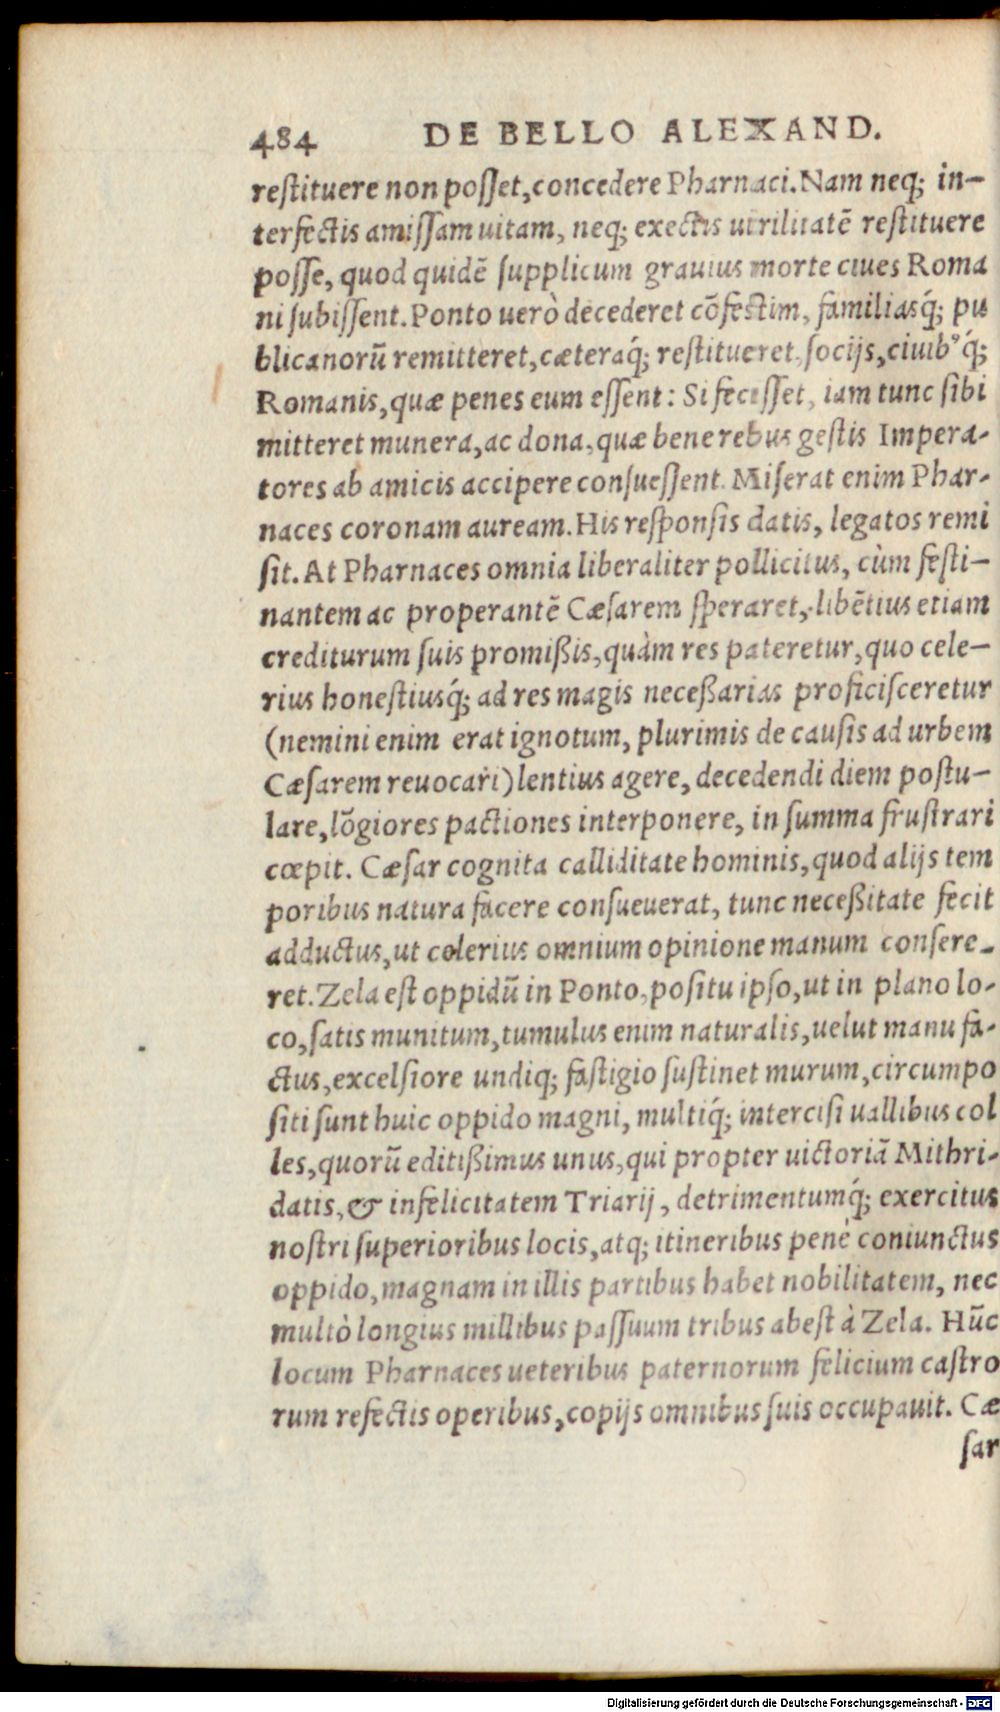 484 DE BELLO ALEXAND.
reſtituere non poſſet, concedere Pharnaci. Nam neq; in-
terfectis amiſſam uitam, neq; exectis uirilitatē reſtituere
poſſe, quod quidē ſupplicium grauius morte ciues Roma
ni ſubiſſent. Ponto uerò decederet cōfeſtim, familiasq́; pu
blicanorū remitteret, cæteraq́; reſtitueret ſocijs, ciuibꝰq́;
Romanis, quæ penes eum eſſent: Si feciſſet, iam tunc ſibi
mitteret munera, ac dona, quæ bene rebus geſtis Impera-
tores ab amicis accipere conſueſſent. Miſerat enim Phar-
naces coronam auream. His reſponſis datis, legatos remi
ſit. At Pharnaces omnia liberaliter pollicitus, cùm feſti-
nantem ac properantē Cæſarem ſperaret, libētius etiam
crediturum ſuis promißis, quàm res pateretur, quo cele-
rius honeſtiusq́; ad res magis neceßarias proficiſceretur
(nemini enim erat ignotum, plurimis de cauſis ad urbem
Cæſarem reuocari) lentius agere, decedendi diem poſtu-
lare, lōgiores pactiones interponere, in ſumma fruſtrari
cœpit. Cæſar cognita calliditate hominis, quod alijs tem
poribus natura facere conſueuerat, tunc neceßitate fecit
adductus, ut celerius omnium opinione manum conſere-
ret. Zela eſt oppidū in Ponto, poſitu ipſo, ut in plano lo-
co, ſatis munitum, tumulus enim naturalis, uelut manu fa-
ctus, excelſiore undiq; faſtigio ſuſtinet murum, circumpo
ſiti ſunt huic oppido magni, multiq́; interciſi uallibus col
les, quorū editißimus unus, qui propter uictoriā Mithri-
datis, & infelicitatem Triarij, detrimentumq́; exercitus
noſtri ſuperioribus locis, atq; itineribus penè coniunctus
oppido, magnam in illis partibus habet nobilitatem, nec
multò longius millibus paſſuum tribus abeſt à Zela. Hūc
locum Pharnaces ueteribus paternorum felicium caſtro
rum refectis operibus, copijs omnibus ſuis occupauit. Cæ
ſar
Digitalisierung gefördert durch die Deutsche Forschungsgemeinschaft - DFG